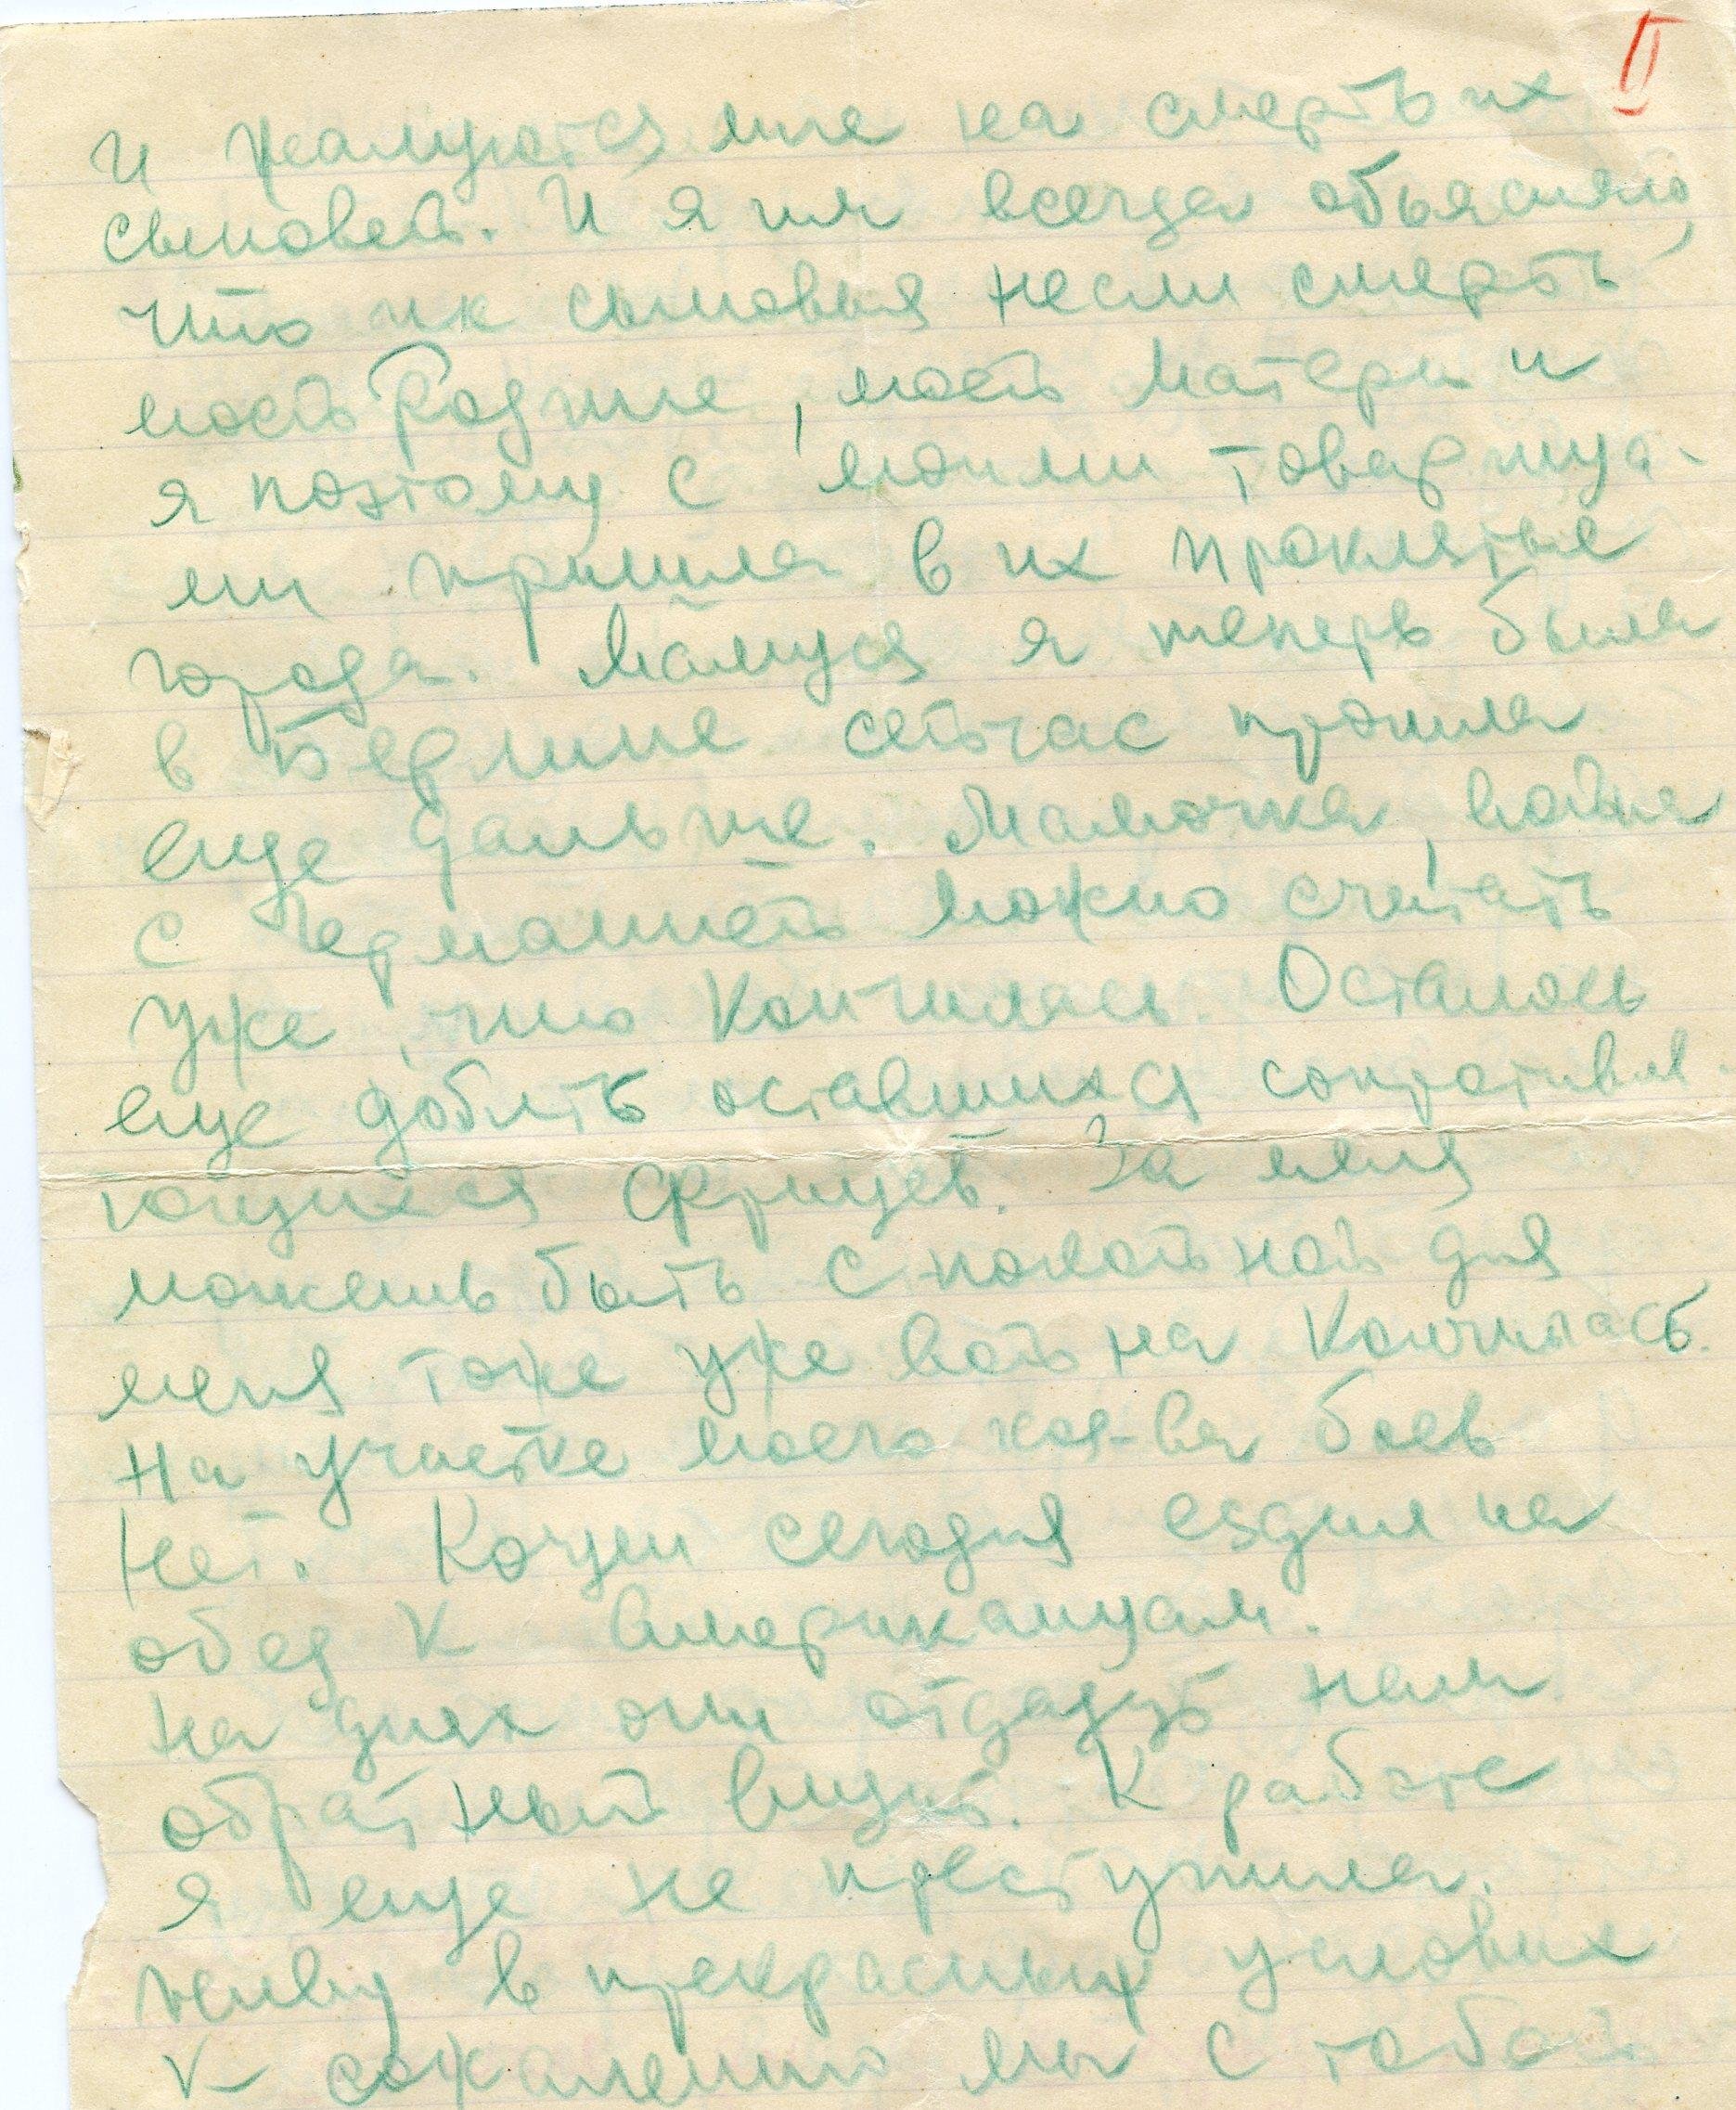 II
И жалуются мне на смерть их
сыновей. И я им всегда объясняю,
что их сыновья несли смерть
моей Родине, моей Матери и
я поэтому с моими товарища-
ми пришла в их проклятые
города. Мамуся я теперь была
в Берлине сейчас прошла
еще дальше. Мамочка, война
с Германией можно считать
уже, что кончилась. Осталось
еще добить оставшихся сопротивля-
ющихся фрицев. За меня
можешь быть спокойной для
меня тоже уже война кончилась.
На участке моего хоз-ва боев
нет. сегодня ездил на
обед к Американцам.
На днях они отдадут нам
обратный визит. К работе
я еще не преступила.
Живу в прекрасных условиях
К сожалению мы с тобой